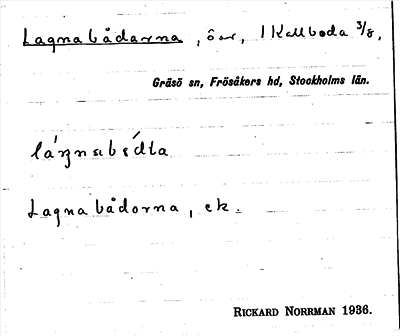 Lagnabådarna, öar, 1 Kallboda 3/8,
Gräsö sn, Frösåkers hd, Stockholms län.
Lagnabådorna, ek.
RICKARD NORRMAN 1936.